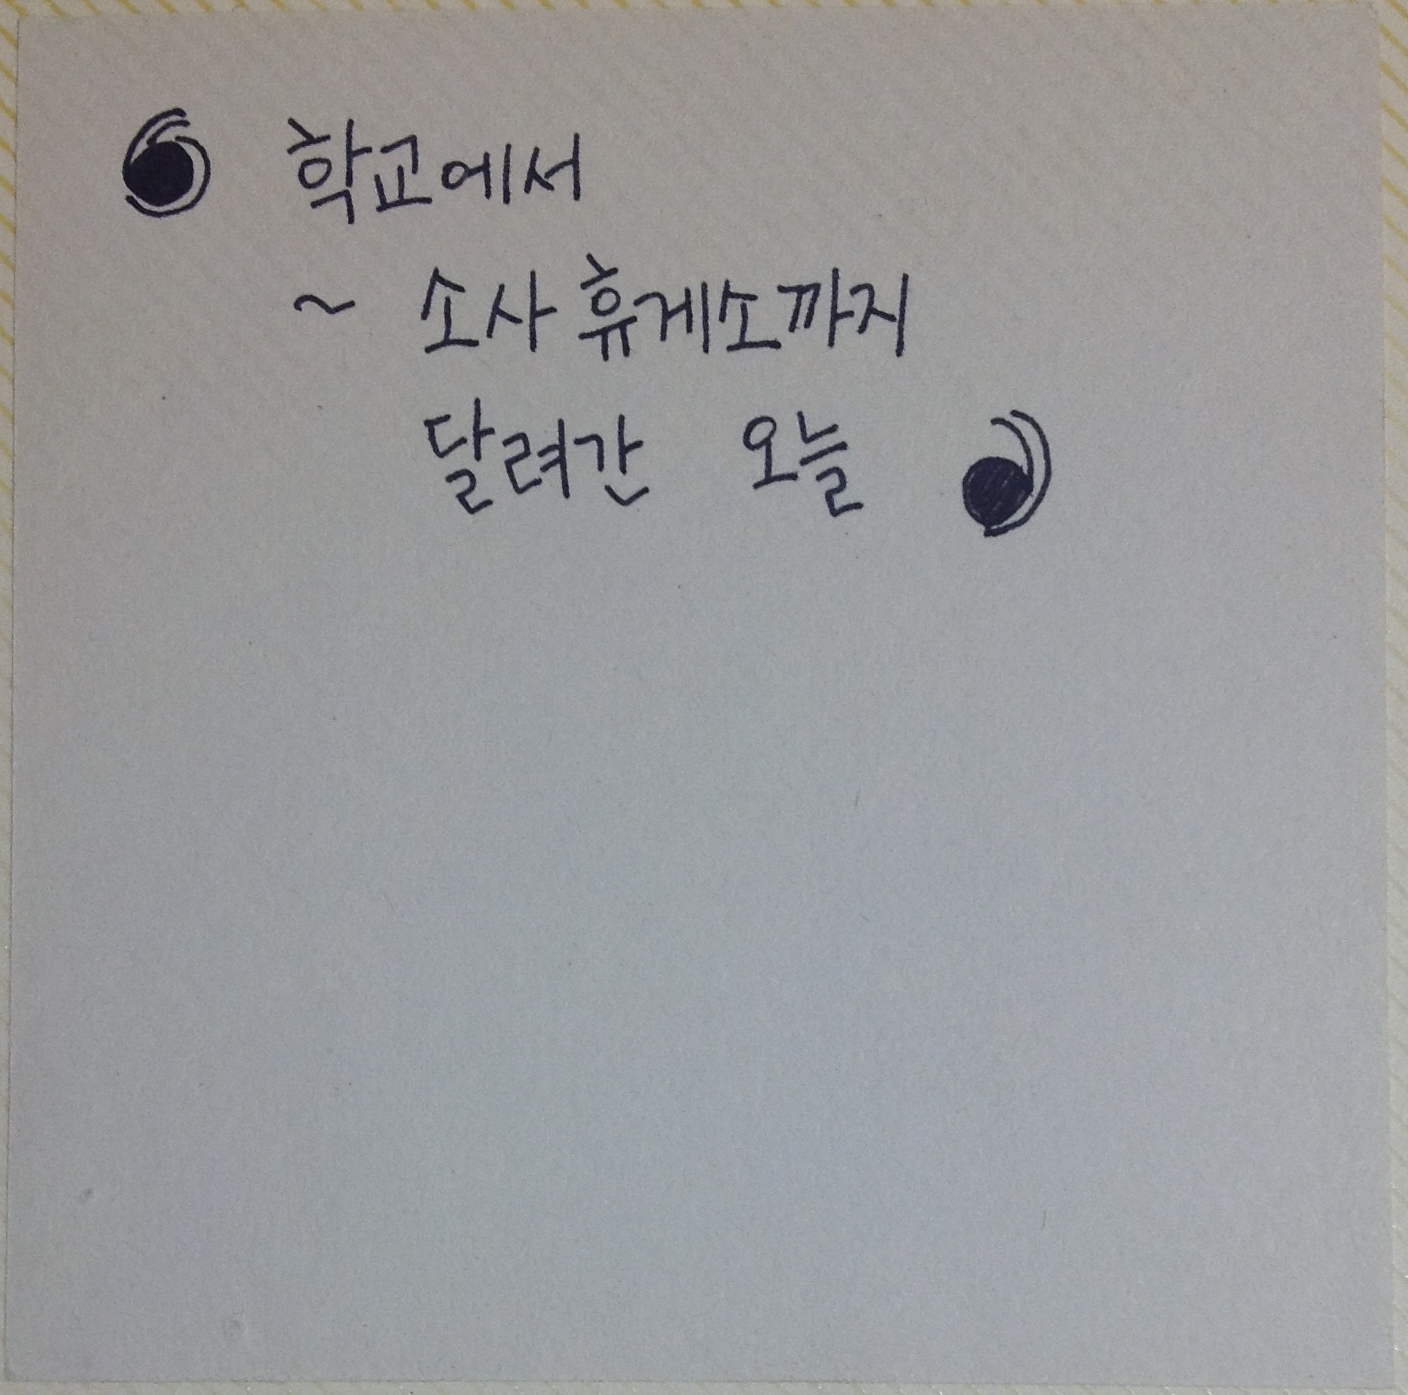 학교에서
~ 소사 휴게소까지
달려간 오늘